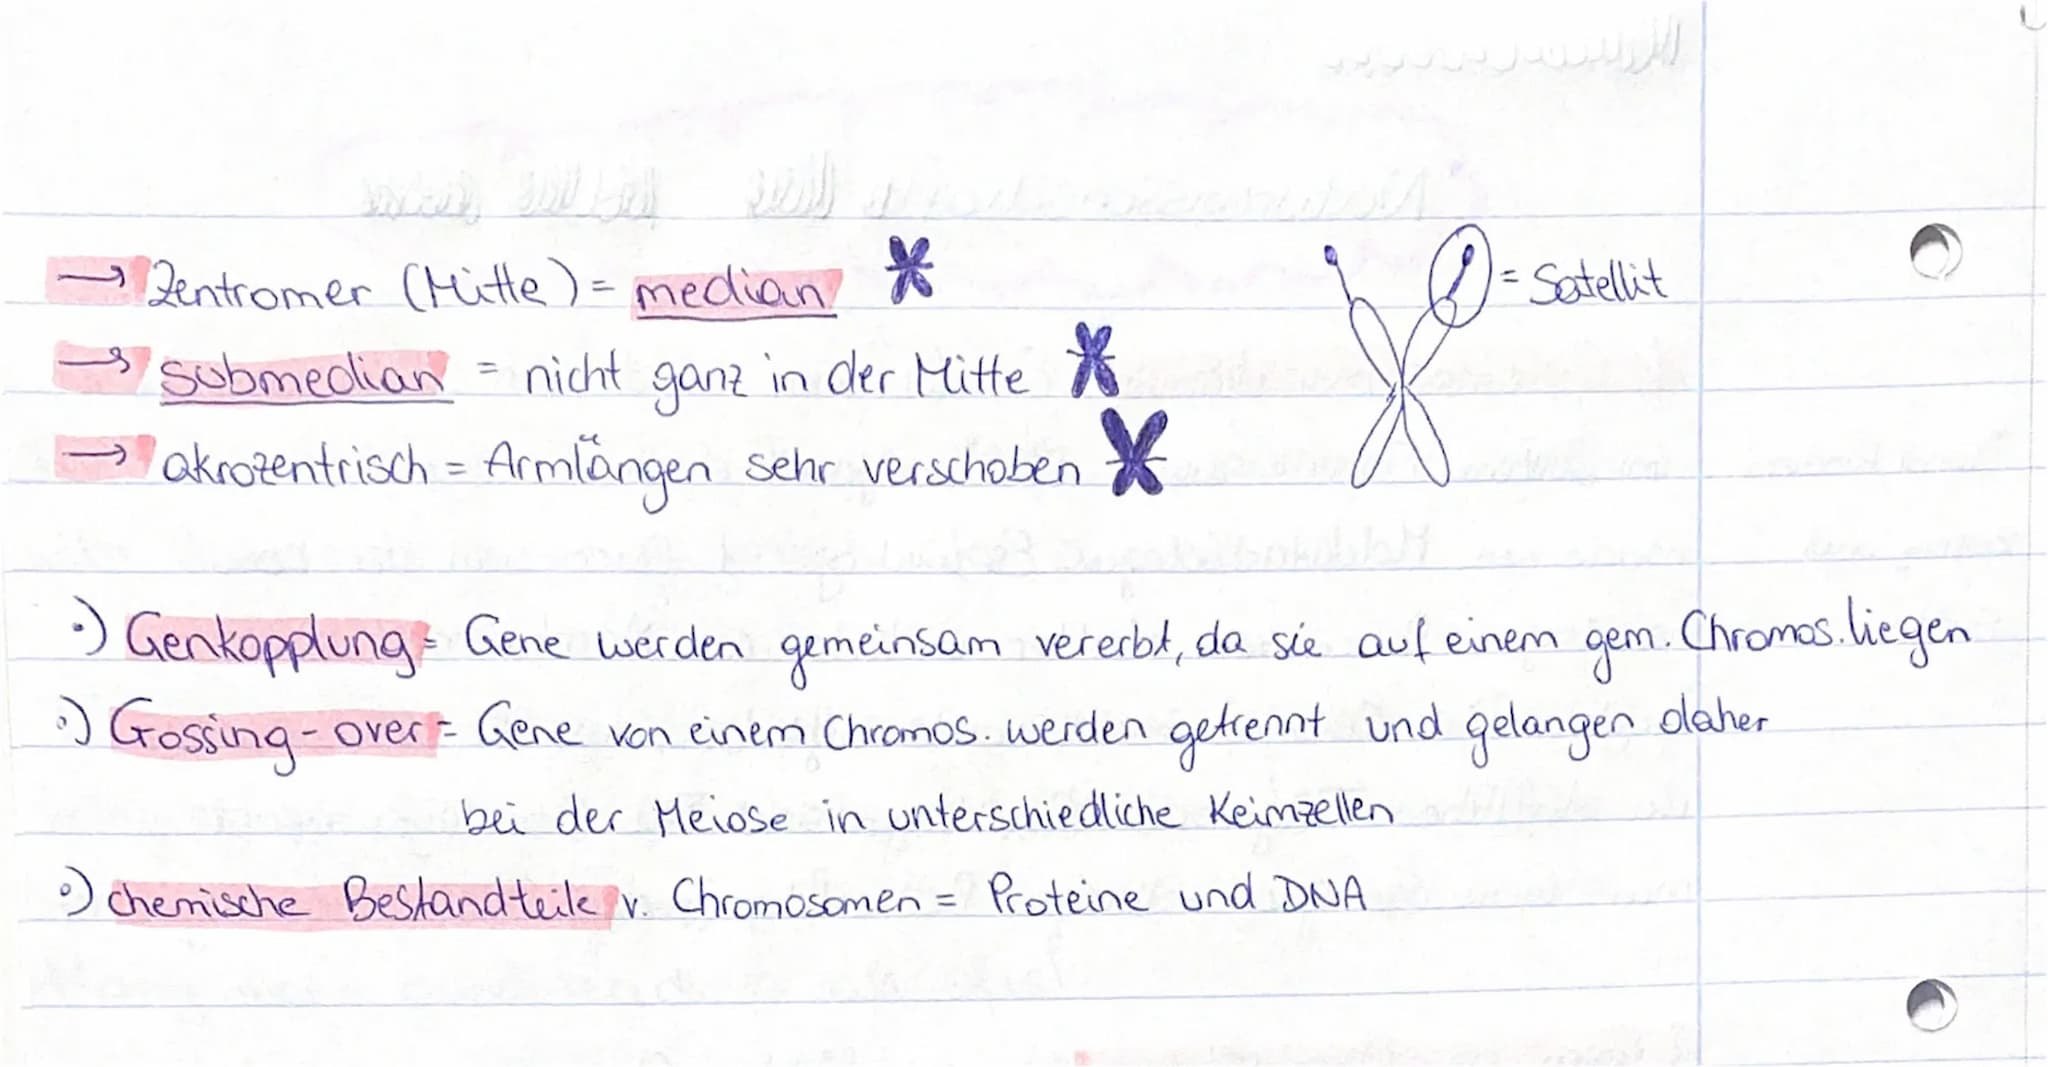 → Zentromer (Mitte) = median
= Satellit
→ submedian = nicht ganz in der Mitte
→ akrozentrisch = Armlängen sehr verschoben
•) Genkopplung = Gene werden gemeinsam vererbt, da sie auf einem gem. Chromos. liegen
•) Crossing-over = Gene von einem Chromos. werden getrennt und gelangen daher
bei der Meiose in unterschiedliche Keimzellen
•) chemische Bestandteile v. Chromosomen = Proteine und DNA